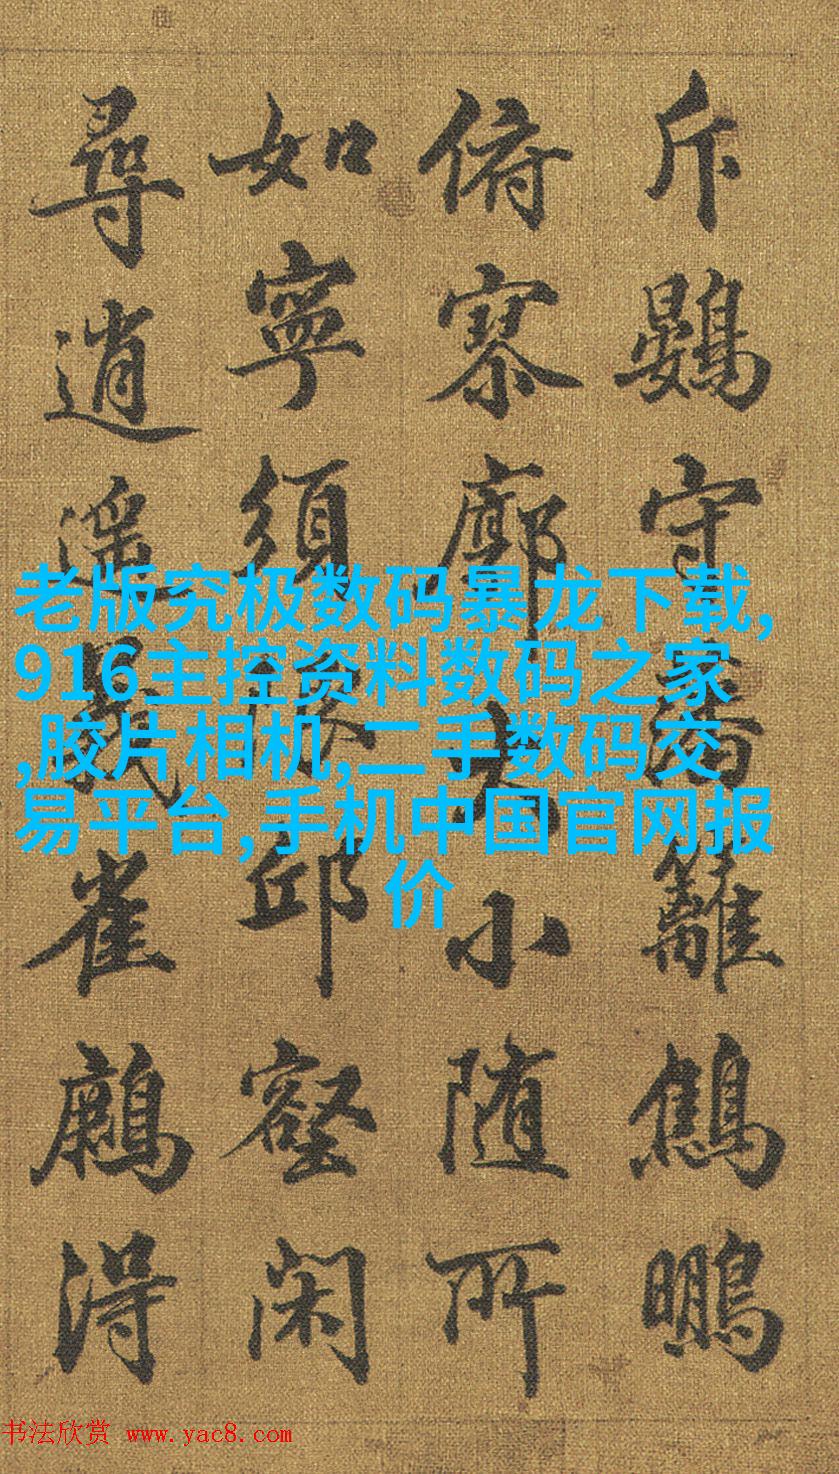 斥鷃守藩籬鷦鵬
俯寥廓大小随所
如寧須限邱壑閑
尋逍遥雀得
老版究极数码暴龙下载,
916主控资料数码之家
,胶片相机,二手数码交
易平台,手机中国官网报
价
书法欣赏 www.yac8.com